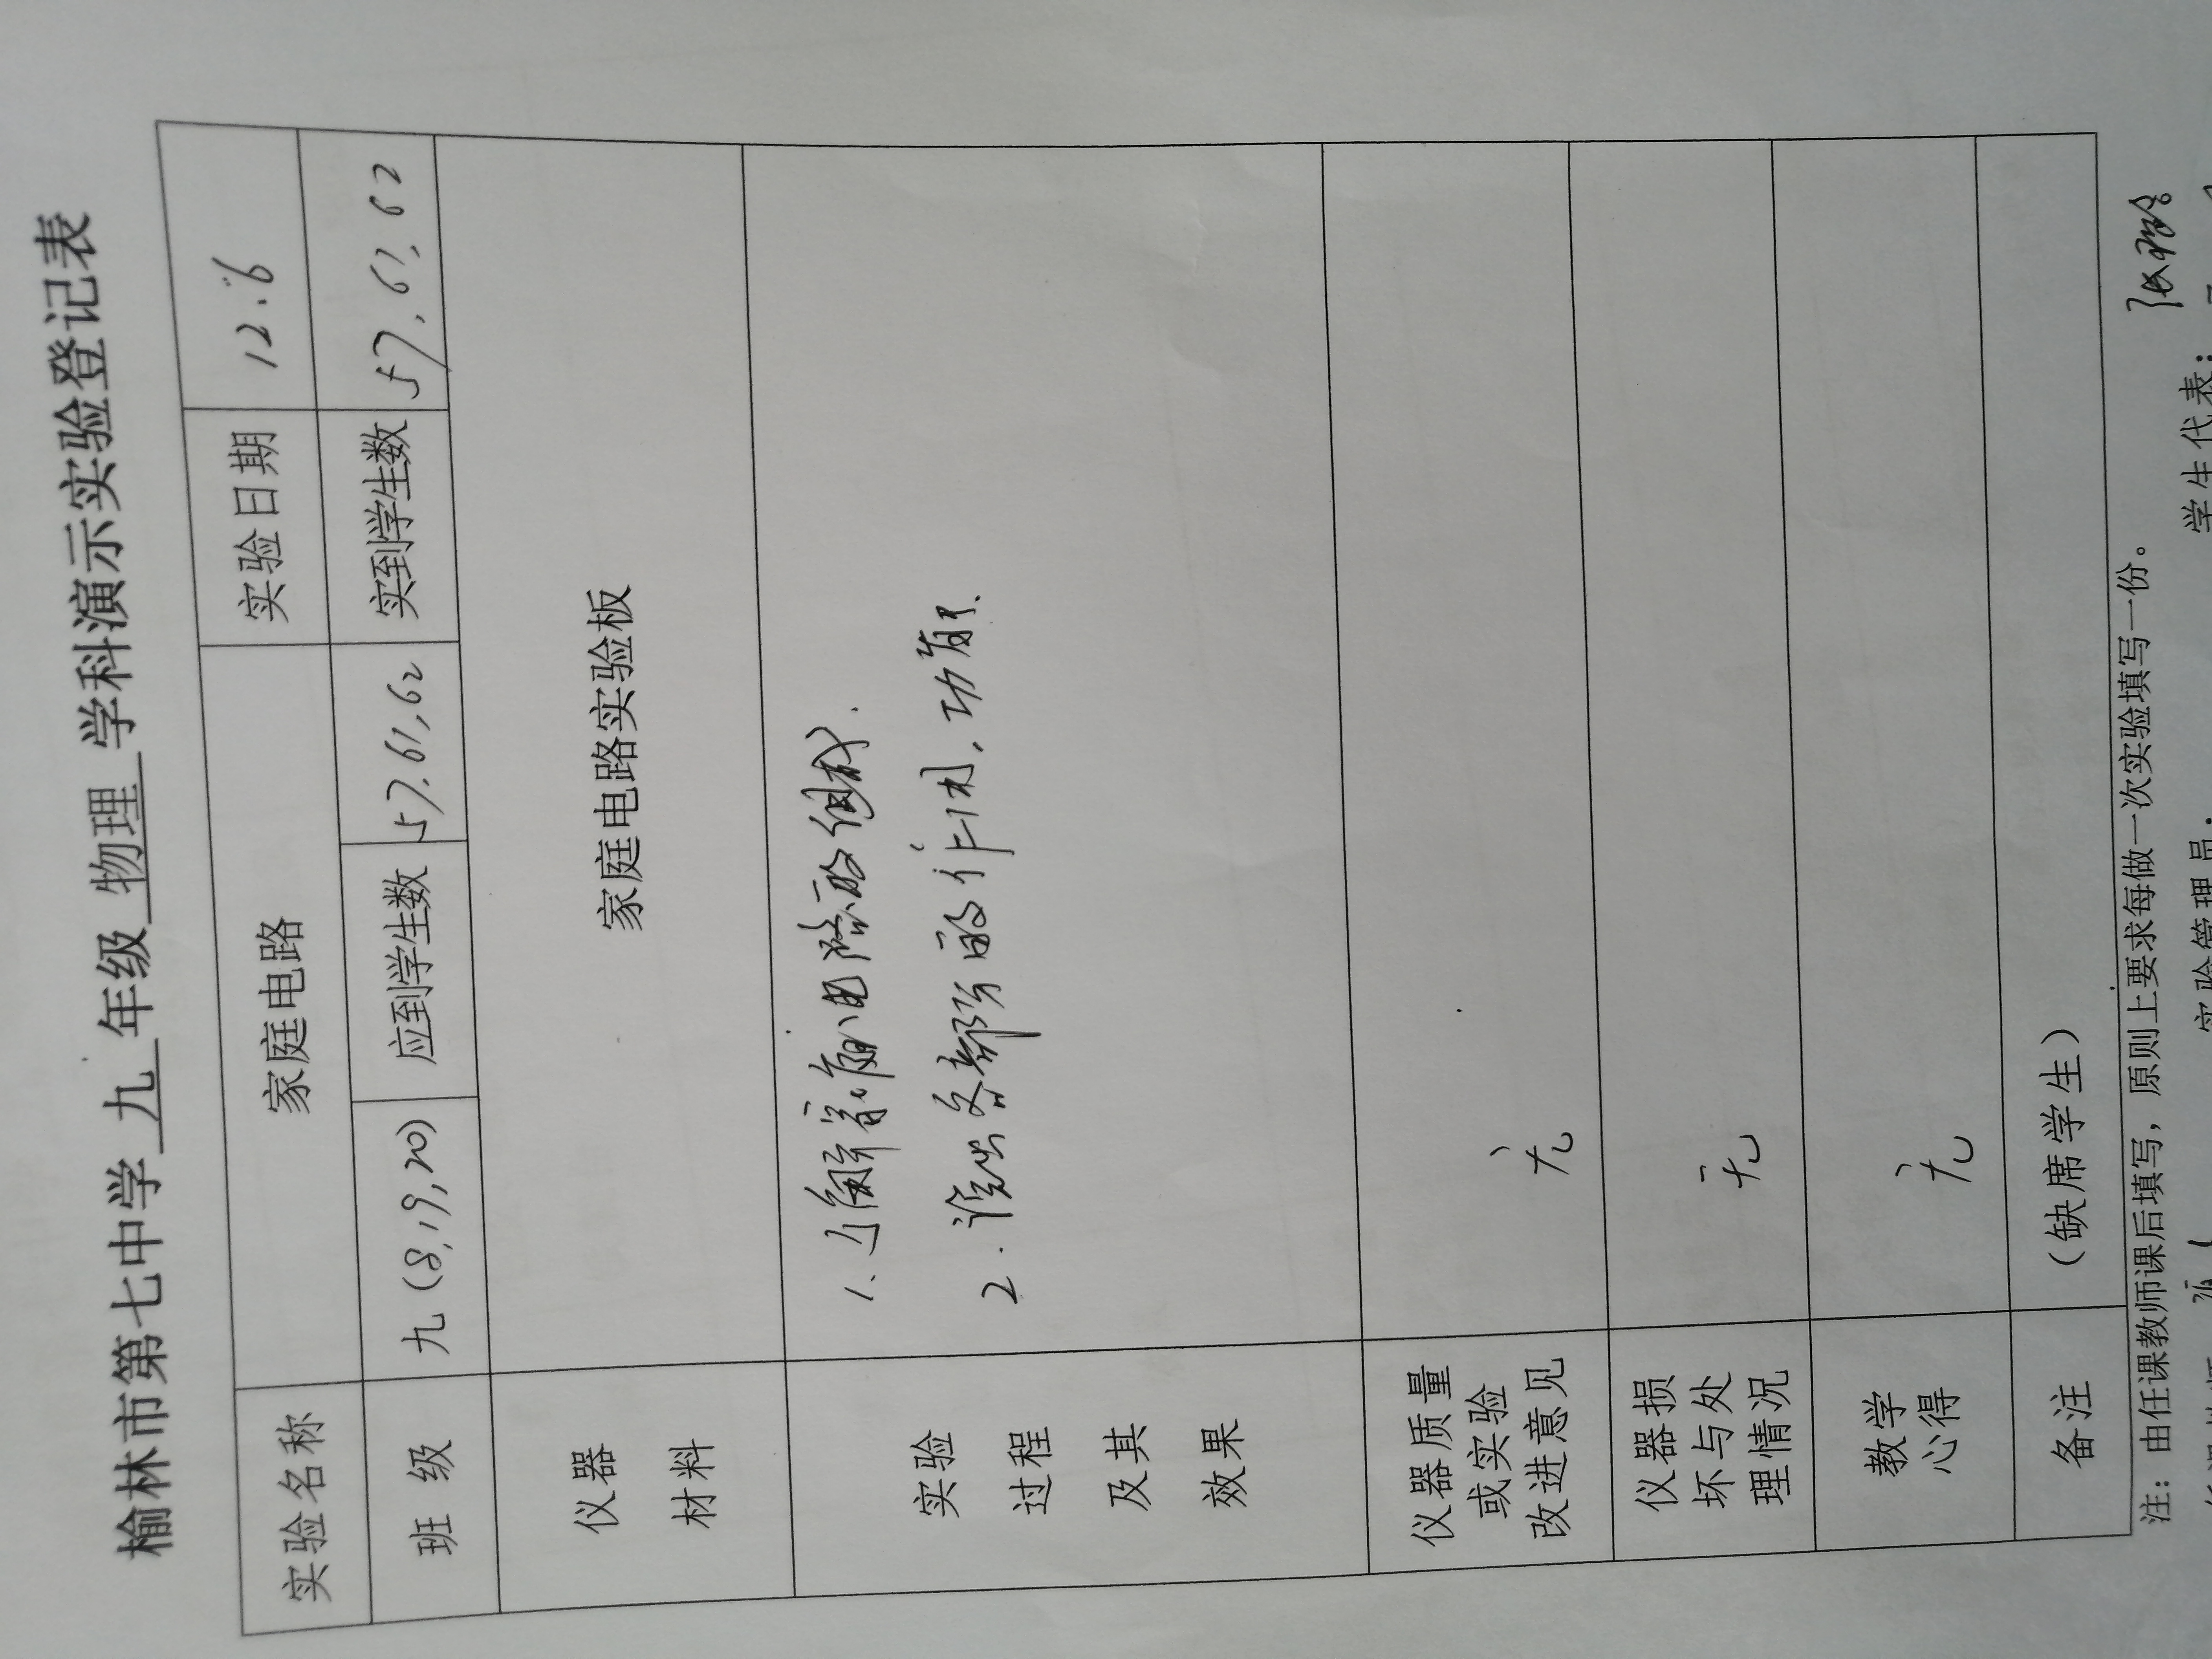 榆林市第七中学 九 年级 物理 学科演示实验登记表
实验名称 家庭电路 实验日期 12.6
班 级 九(8,19,20) 应到学生数 57,61,62 实到学生数 57,61,62
仪器
材料
家庭电路实验板
实验
过程
及其
效果
1、了解家庭电路的组成.
2.说出各部分的作用,功能.
仪器质量
或实验
改进意见
无
仪器损
坏与处
理情况
无
教学
心得
无
备注 (缺席学生)
注:由任课教师课后填写,原则上要求每做一次实验填写一份。
实验管理员: 学生代表: